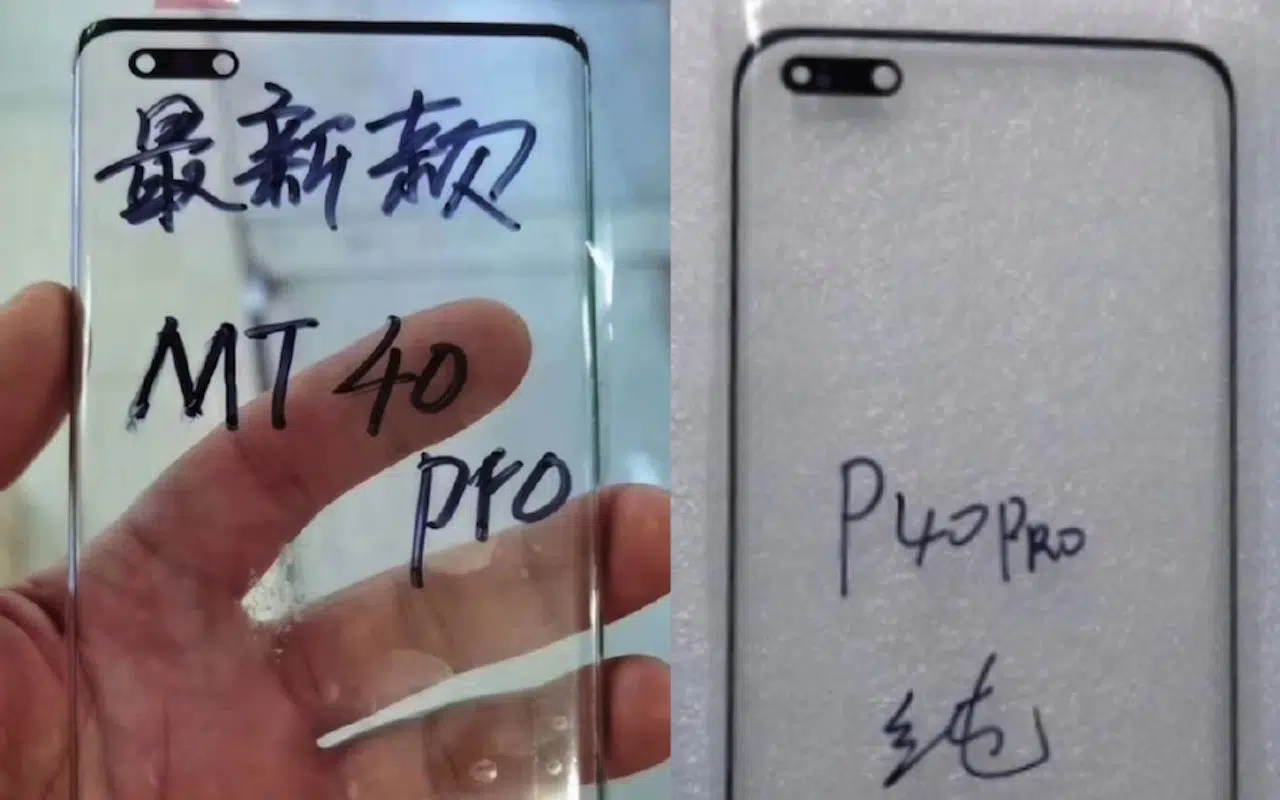 最新款
MT 40
pro
P40PRO
纯